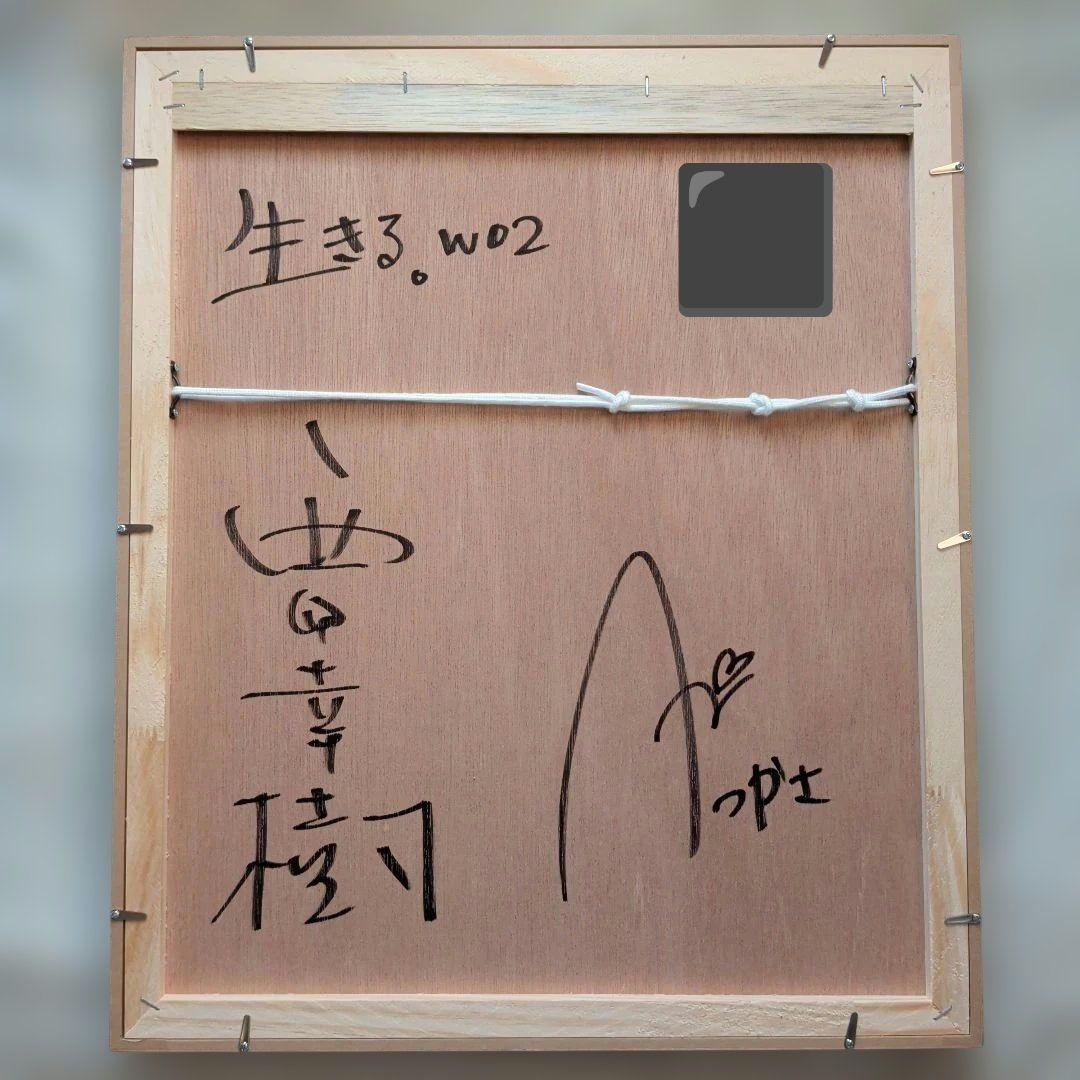 生きる。w02
幸樹
A
つかさ